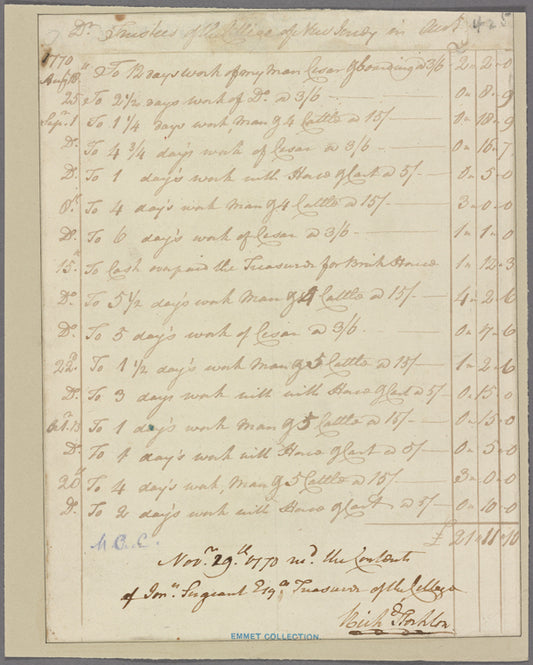 Dr. Trustees of the College of New Jersey in Acct. 425
1770
Augt. 18th To 12 days work of my man Cesar & boarding a 3/6 2 " 2 " 0
25 To 2 1/2 days work of Do. a 3/6 — 0 " 8 " 9
Sepr. 1 To 1 1/4 days work, Man & 4 Cattle a 15/ — 0 " 18 " 9
Do. To 4 3/4 day's work of Cesar a 3/6 — 0 " 16 " 7
Do. To 1 day's work with Horse & Cart a 5/ — 0 " 5 " 0
8th To 4 day's work Man & 4 Cattle a 15/ — 3 " 0 " 0
Do. To 6 day's work of Cesar a 3/6 — 1 " 1 " 0
15th To Cash overpaid the Treasurer for Brick House 1 " 12 " 3
Do. To 5 1/2 day's work Man & 4 Cattle a 15/ — 4 " 2 " 6
Do. To 5 day's work of Cesar a 3/6 — 0 " 7 " 6
22d. To 1 1/2 day's work Man & 5 Cattle a 15/ — 1 " 2 " 6
Do. To 3 days work with with Horse & Cart a 5/ — 0 " 15 " 0
Octr. 13 To 1 day's work Man & 5 Cattle a 15/ — 0 " 15 " 0
Do. To 1 day's work with Horse & Cart a 5/ — 0 " 5 " 0
20th To 4 day's work, Man & 5 Cattle a 15/ — 3 " 0 " 0
Do. To 2 day's work with Horse & Cart a 5/ — 0 " 10 " 0
£ 21 " 11 " 10
Novr. 29th. 1770 recd. the Contents
of Jonn. Sergeant Esqr. Treasurer of the College
Richd. Stockton
EMMET COLLECTION.